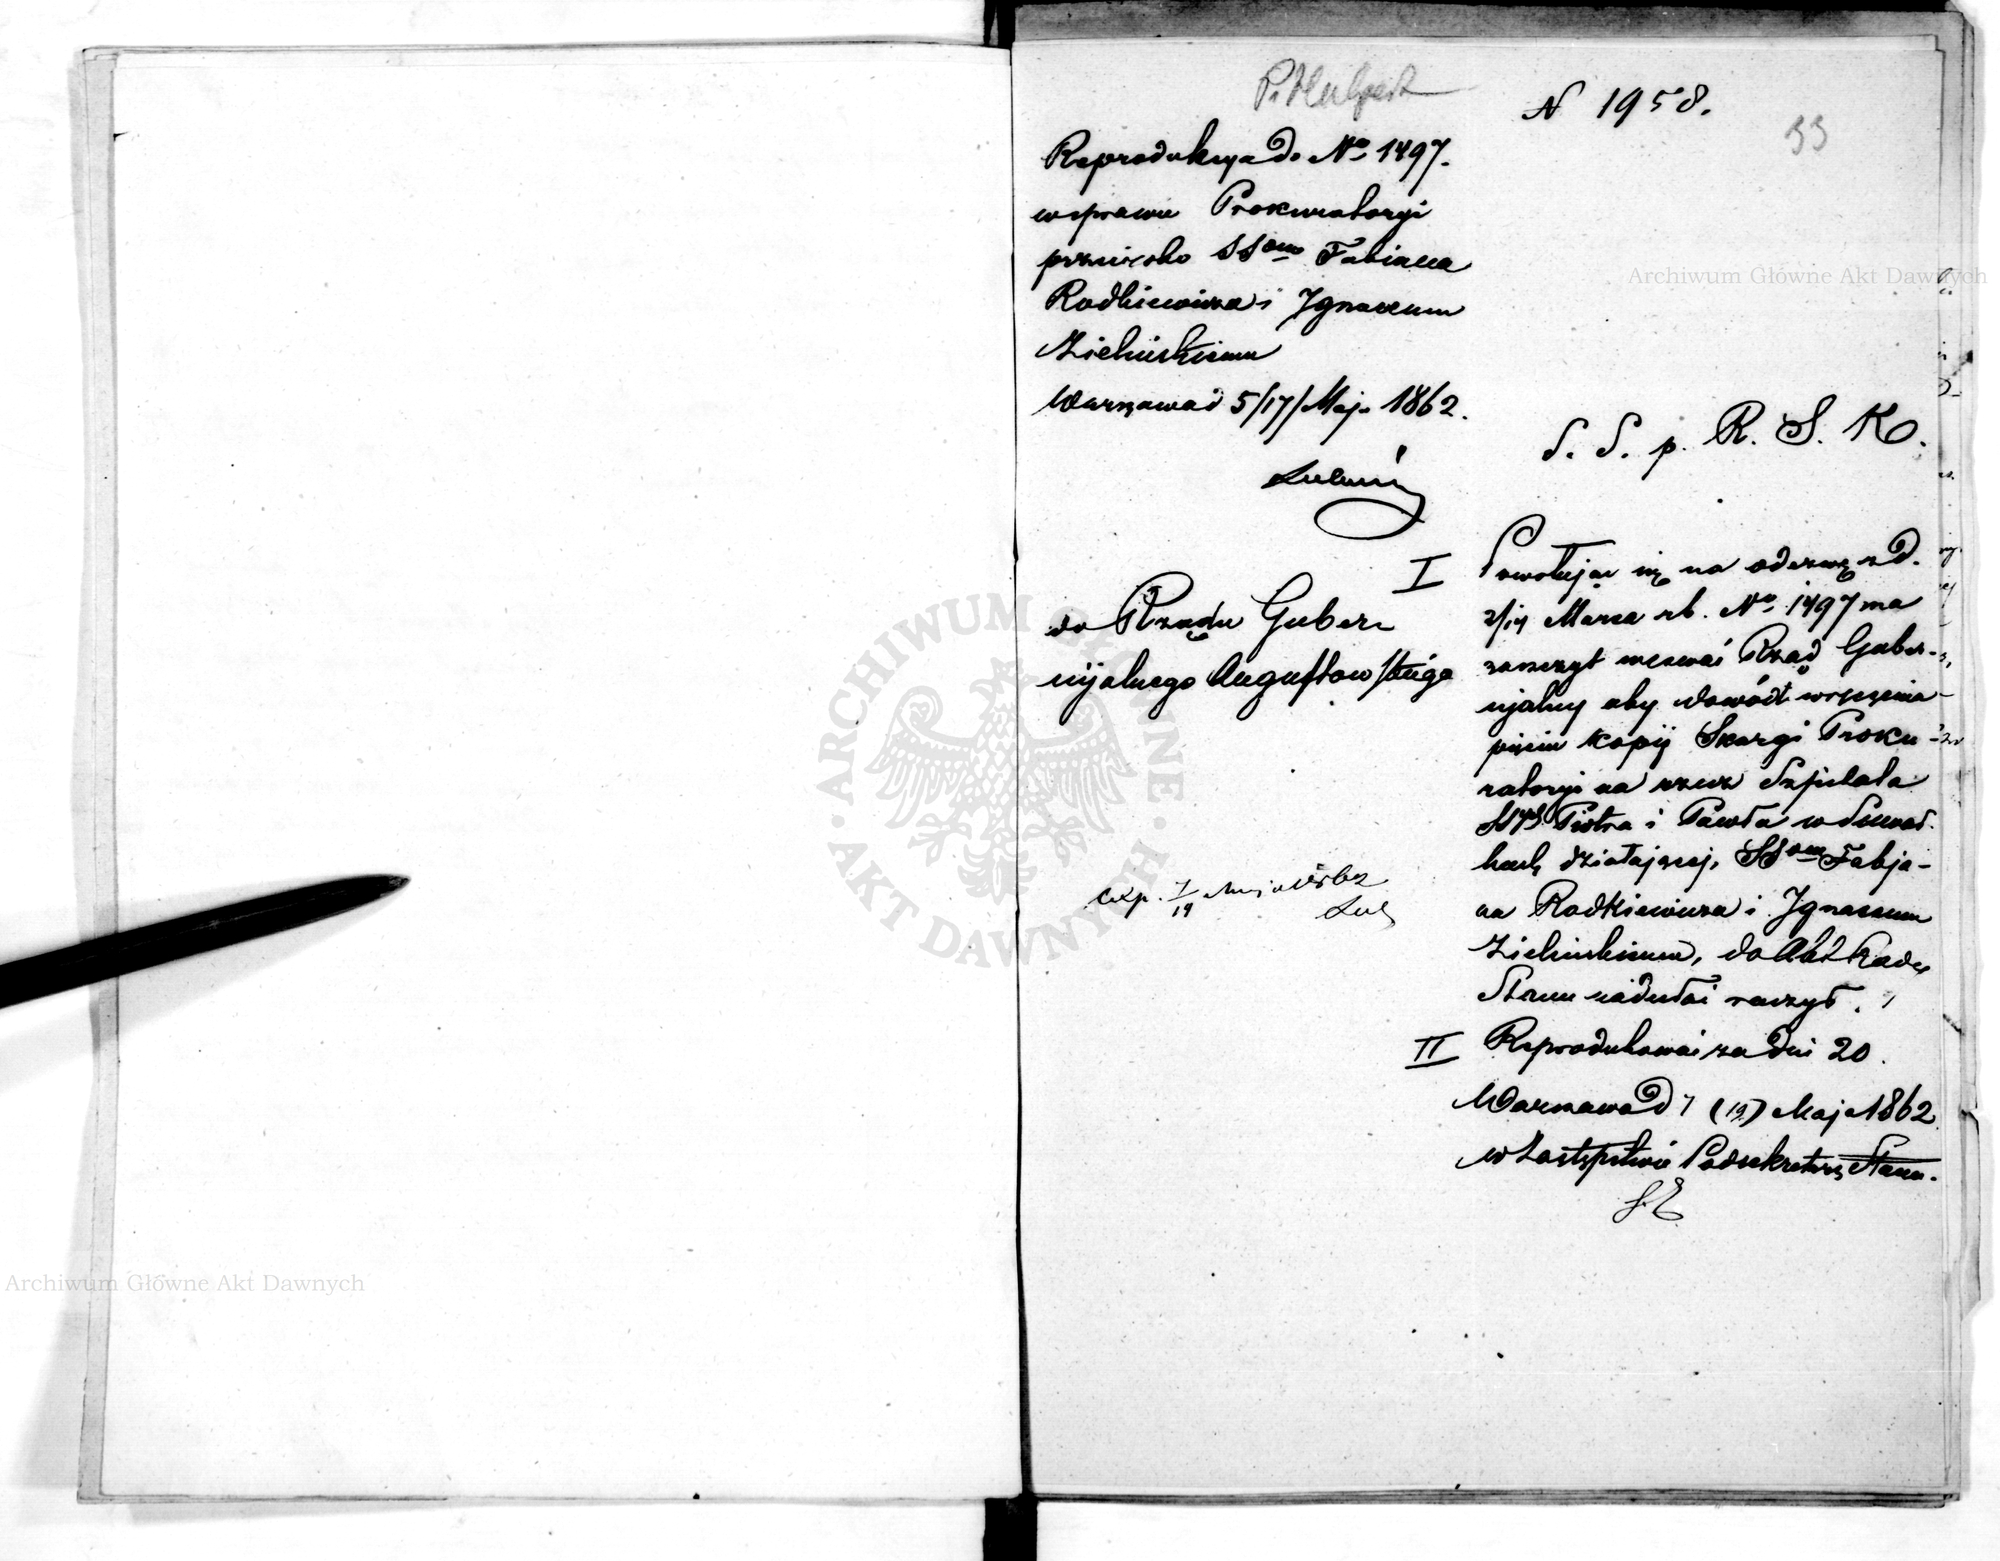 P. Halpert
N 1958.
33
Reprodukcya do No 1497.
w sprawie Prokuratoryi
przeciwko SSom Fabiana
Radkiewicza i Ignacemu
Zielińskiemu
Warszawa d 5/17/ Maja 1862.
S. S. p. R. S. K.
I
do Rządu Guber-
nijalnego Augustowskiego
Powołując się na odezwę z d.
2/14 Marca rb. No 1497 ma
zaszczyt wezwać Rząd Guber-
nijalny aby dowód wręczenia
pięciu kopij Skargi Proku-
ratoryi na rzecz Szpitala
SSych Piotra i Pawła w Suwał-
kach działającej, SSom Fabja-
na Radkiewicza i Ignacemu
Zielińskiemu, do Akt Rady
Stanu nadesłać raczył.
exp. 7/19 Maja 1862
II Reprodukować za dni 20.
Warszawa d 7 (19) Maja 1862
w Zastępstwie Podsekretarz Stanu.
Archiwum Główne Akt Dawnych
ARCHIWUM GŁÓWNE
AKT DAWNYCH
Archiwum Główne Akt Dawnych